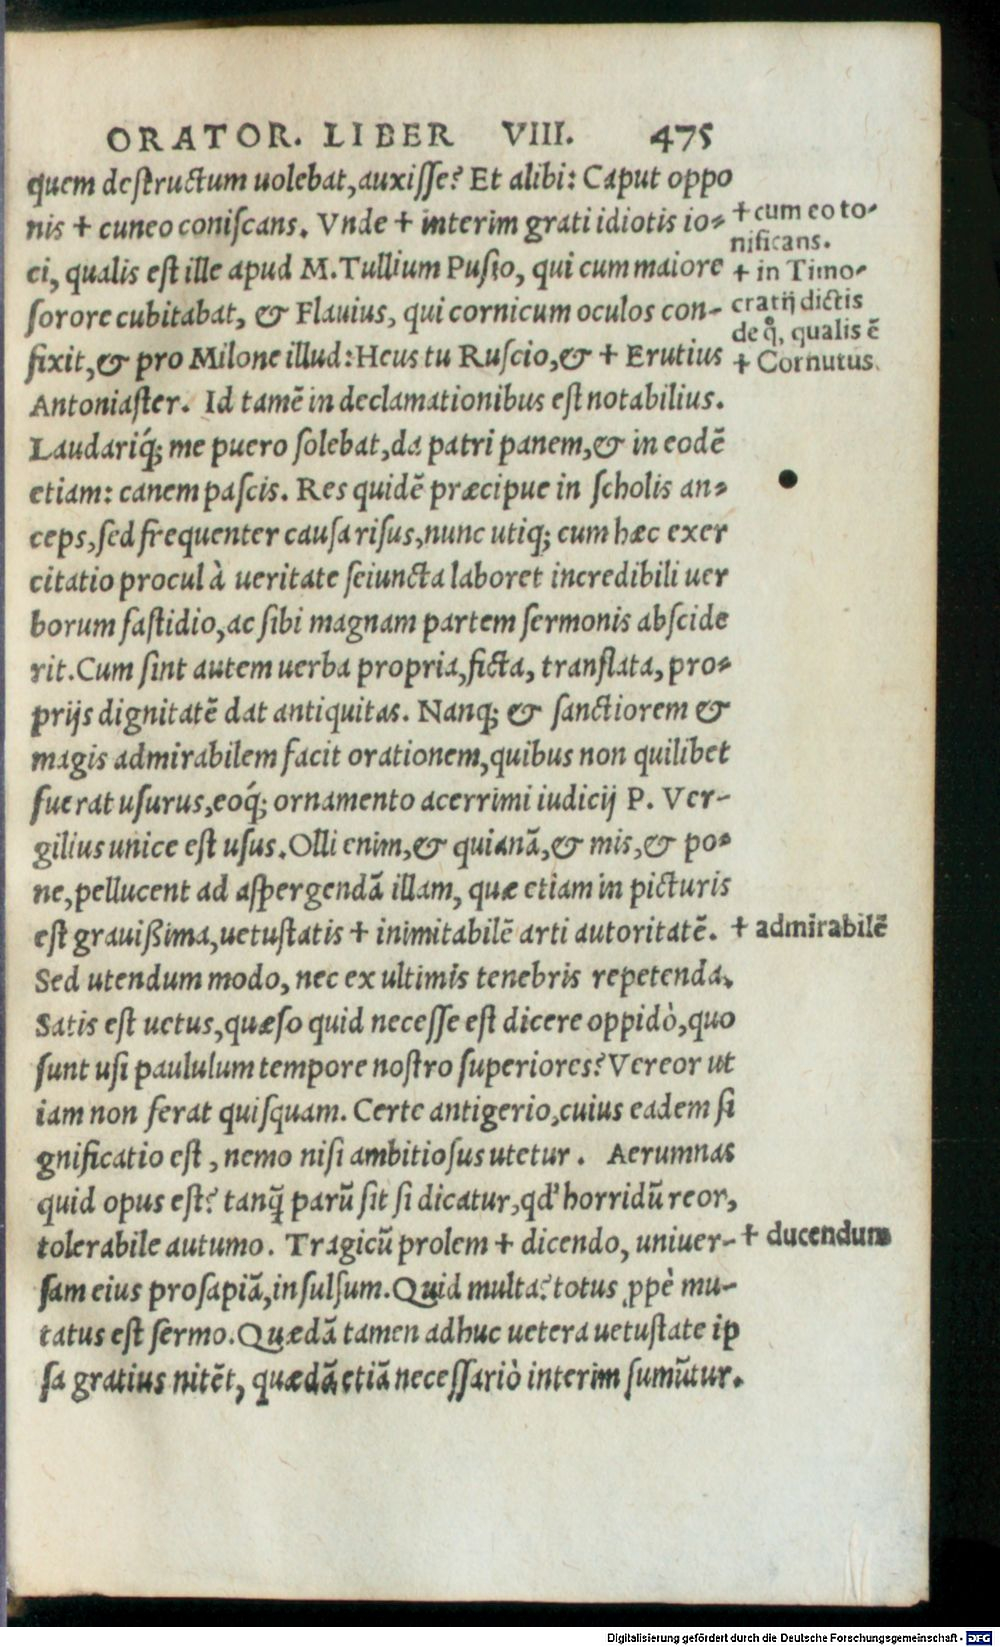 ORATOR. LIBER VIII. 475
quem destructum uolebat, auxisse? Et alibi: Caput oppo
nis + cuneo coniscans. Vnde + interim grati idiotis io-
ci, qualis est ille apud M. Tullium Pusio, qui cum maiore
sorore cubitabat, & Flauius, qui cornicum oculos con-
fixit, & pro Milone illud: Heus tu Ruscio, & + Erutius
Antoniaster. Id tamē in declamationibus est notabilius.
Laudariq́; me puero solebat, da patri panem, & in eodē
etiam: canem pascis. Res quidē præcipue in scholis an-
ceps, sed frequenter causa risus, nunc utiq; cum hæc exer
citatio procul à ueritate seiuncta laboret incredibili uer
borum fastidio, ac sibi magnam partem sermonis abscide
rit. Cum sint autem uerba propria, ficta, translata, pro-
prijs dignitatē dat antiquitas. Nanq; & sanctiorem &
magis admirabilem facit orationem, quibus non quilibet
fuerat usurus, eoq́; ornamento acerrimi iudicij P. Ver-
gilius unice est usus. Olli enim, & quianā, & mis, & po-
ne, pellucent ad aspergendā illam, quæ etiam in picturis
est grauißima, uetustatis + inimitabilē arti autoritatē.
Sed utendum modo, nec ex ultimis tenebris repetenda.
Satis est uetus, quæso quid necesse est dicere oppidò, quo
sunt usi paululum tempore nostro superiores? Vereor ut
iam non ferat quisquam. Certe antigerio, cuius eadem si
gnificatio est, nemo nisi ambitiosus utetur. Aerumnas
quid opus est? tanq̄ parū sit si dicatur, qd' horridū reor,
tolerabile autumo. Tragicū prolem + dicendo, uniuer-
sam eius prosapiā, insulsum. Quid multa? totus ꝓpè mu-
tatus est sermo. Quædā tamen adhuc uetera uetustate ip
sa gratius nitēt, quædā etiā necessariò interim sumūtur.
+ cum eo to-
nificans.
+ in Timo-
cratij dictis
de q̊, qualis ē
+ Cornutus.
+ admirabilē
+ ducendum
Digitalisierung gefördert durch die Deutsche Forschungsgemeinschaft - DFG